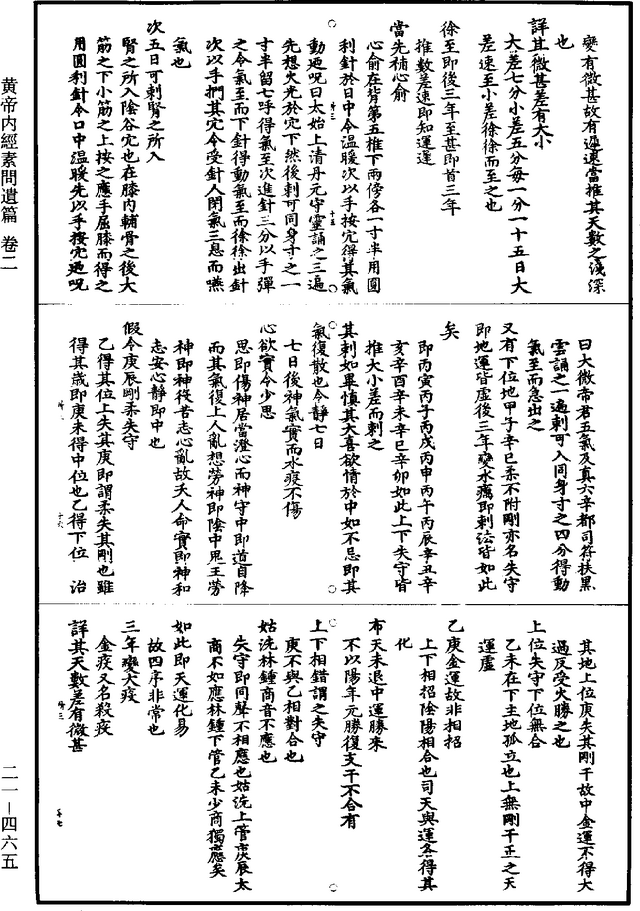 黄帝內經素問遺篇 卷二
變有微甚故有遲速當推其天數之淺深
也
詳其微甚差有大小
大差七分小差五分每一分一十五日大
差速至小差徐徐而至之也
徐至即後三年至甚即首三年
推數差速即知運遲
當先補心俞
心俞在背第五椎下兩傍各一寸半用圓
利針於日中令溫暖次以手按穴得其氣
動迺呪曰太始上清丹元守靈誦之三遍
先想火光於穴下然後刺可同身寸之一
寸半留七呼得氣至次進針三分以手彈
之令氣至而下針得動氣至而徐徐出針
次以手捫其穴令受針人閉氣三息而嚥
氣也
次五日可刺腎之所入
腎之所入陰谷穴也在膝內輔骨之後大
筋之下小筋之上按之應手屈膝而得之
用圓利針令口中溫暖先以手按穴迺呪
曰大微帝君五氣及真六辛都司符扶黑
雲誦之一遍刺可入同身寸之四分得動
氣至而急出之
又有下位地甲子辛巳柔不附剛亦名失守
即地運皆虛後三年變水癘即刺法皆如此
矣
即丙寅丙子丙戌丙申丙午丙辰辛丑辛
亥辛酉辛未辛巳辛卯如此上下失守皆
推大小差而刺之
其刺如畢慎其大喜欲情於中如不忌即其
氣復散也令靜七日
七日後神氣實而水疫不傷
心欲實令少思
思即傷神居當澄心而神守中即道自降
而其氣復上人亂想勞神即陰中鬼王勞
神即神役苦志心亂故夭人命實即神和
志安心靜即中也
假令庚辰剛柔失守
乙得其位上失其庚即謂柔失其剛也雖
得其歲即庚未得中位也乙得下位 治
其地上位庚失其剛干故中金運不得大
過反受火勝之也
上位失守下位無合
乙未在下主地孤立也上無剛干正之天
運虛
乙庚金運故非相招
上下相招陰陽相合也司天與運各得其
化
布天未退中運勝來
不以陽年元勝復支干不合有
上下相錯謂之失守
庚不與乙相對合也
姑洗林鍾商音不應也
失守即同聲不相應也姑洗上管庚辰太
商不如應林鍾下管乙未少商獨應矣
如此即天運化易
故四序非常也
三年變大疫
金疫又名殺疫
詳其天數差有微甚
二一-四六五